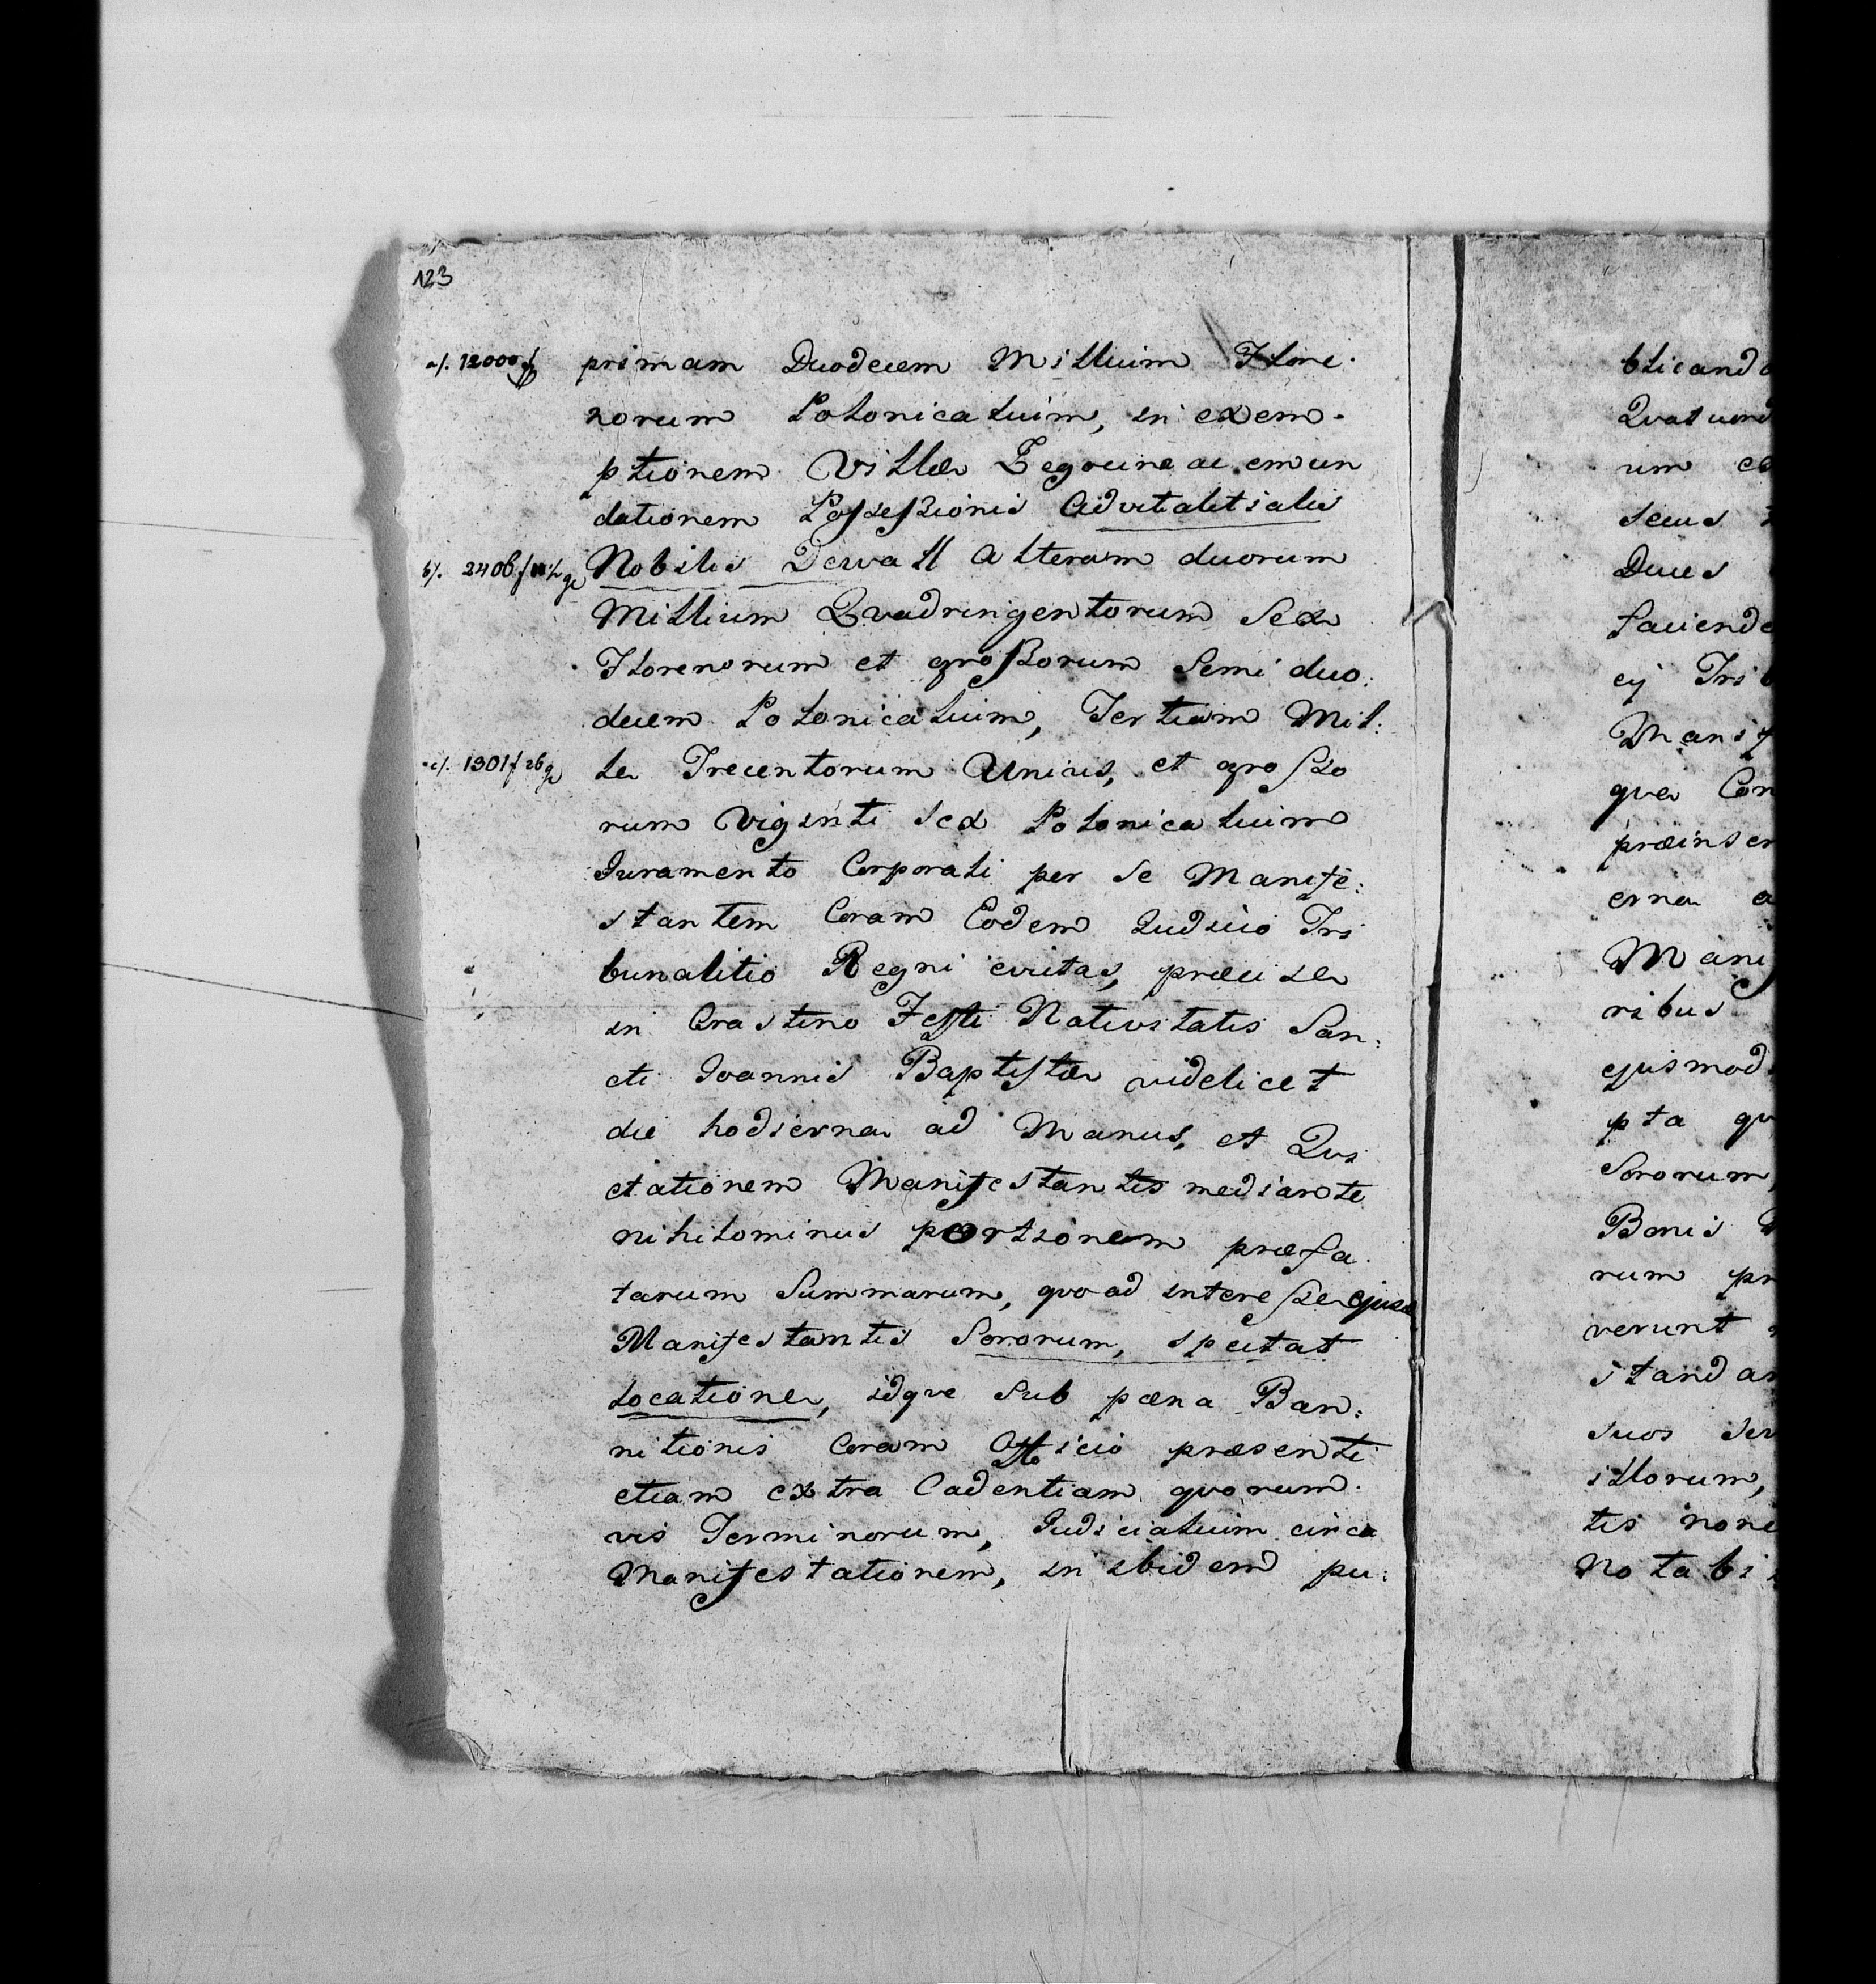 123
a/. 12000 f primam Duodecem Millium Flore.
norum Polonicalium, in exem-
ptionem Villæ Zegocine ac emun
dationem Possessionis Advitalitialis
b/. 2406 f 11½ gr Nobilis Derwall Alteram duorum
Millium Quadringentorum Sex
Florenorum et grossorum Semi duo:
decem Polonicalium, Tertiam Mil:
c/. 1301 f 26 gr le Trecentorum Unius, et grosso
rum Viginti sex Polonicalium
Juramento Corporali per se Manife:
stantem Coram Eodem Judicio Tri
bunalitio Regni evictas, præcise
in Crastino Festi Nativitatis San:
cti Joannis Baptistæ videlicet
die hodierna ad Manus, et Qui
etationem Manifestantis mediante
nihilominus portionem præfa.
tarum Summarum, quoad interesse ejusd
Manifestantis Sororum, spectat
locatione, idque Sub pæna Ban:
nitionis Coram Officio præsenti
etiam extra Cadentiam quorum.
vis Terminorum, Judicialium circa
Manifestationem, in ibidem pu:
blicand
Quatuor
um
secus
Duces
faciend
ej Trib
Manif
que Con
præinser
erna a
Mani
ribus
ejusmod
pta qu
Sororum,
Bonis
rum pr
verunt
standa
suos ser
illorum,
tis none
Notabi